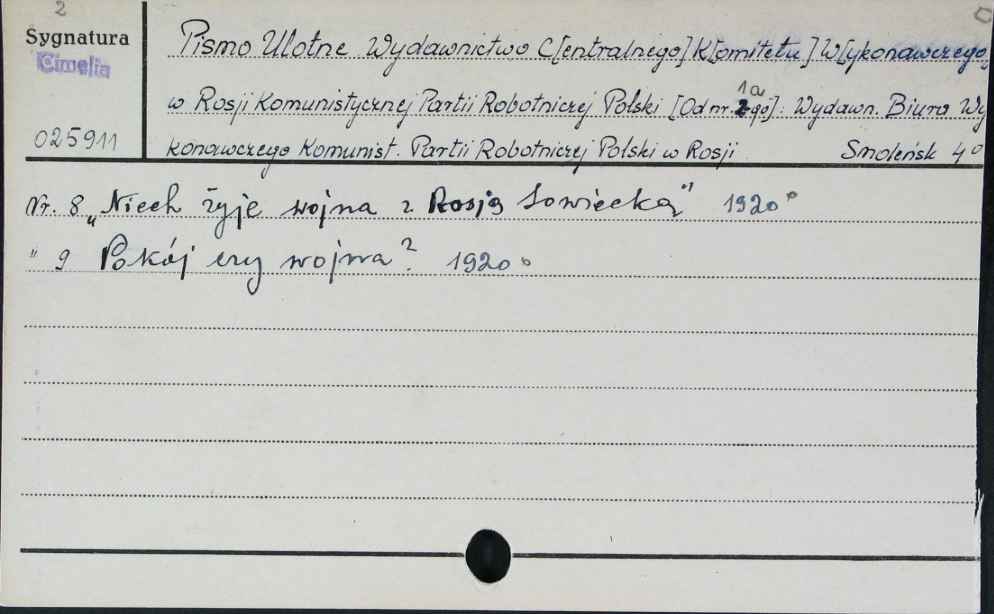 2
Sygnatura
Cimelia
025911
Pismo Ulotne Wydawnictwo C[entralnego] K[omitetu] W[ykonawczego]
1a
w Rosji Komunistycznej Partii Robotniczej Polski [Od nr. 2-go]: Wydawn. Biura Wy
konawczego Komunist. Partii Robotniczej Polski w Rosji Smoleńsk 4°
Nr. 8 „Niech żyje wojna z Rosją Sowiecką" 1920
" 9 Pokój czy wojna? 1920